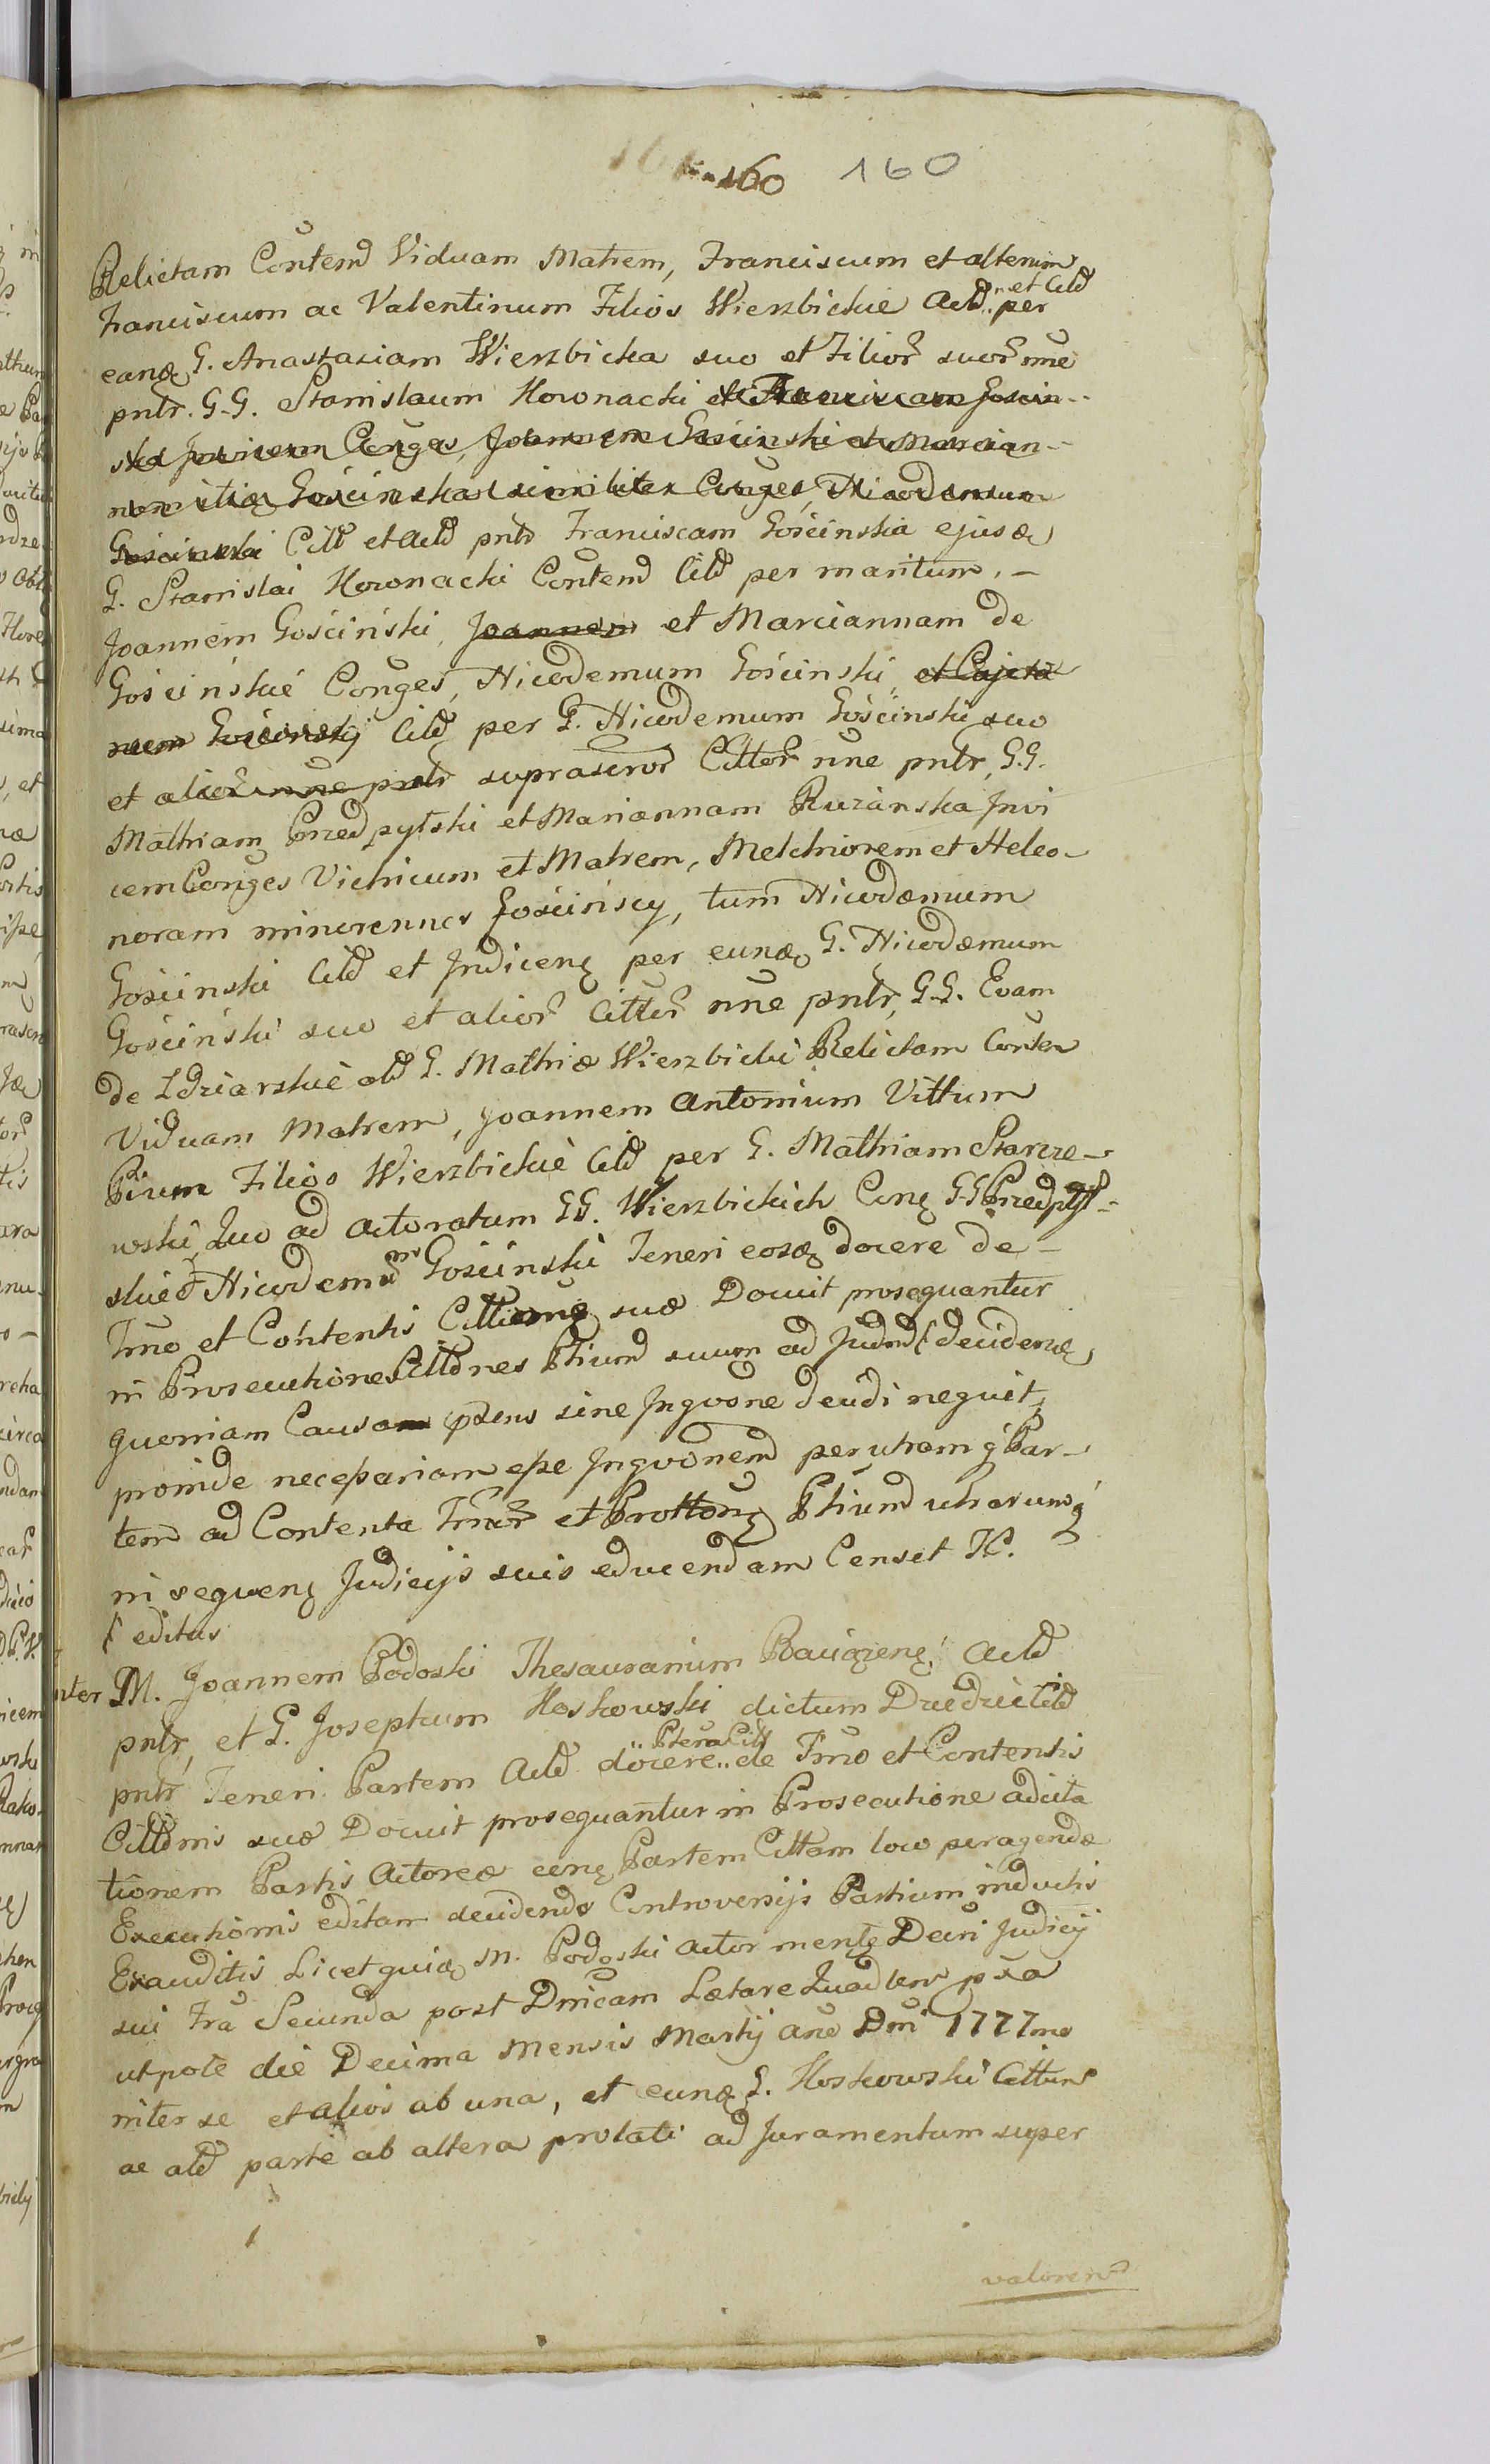 160 160
Relictam Contemd Viduam Matrem, Franciscum et alterum
Franciscum ac Valentinum Filios Wierzbickie Actd. et Citd per
eanq G. Anastaziam Wierzbicka suo et Filior suor nne
pntr. G.G. Stanislaum Kononacki et Franciscam Goscin-
ska Juvicem Conges, Joannem Goscinski et Marcian-
nam itiq Goscinska similiter Conges, Nicodemum
Goscinski Citt et Actd pntr Franciscam Goscinska ejusq
G. Stanislai Kononacki Contemd Citd per maritum.-
Joannem Gościnski, Joannem et Marciannam de
Gościnskie Conges, Nicodemum Gościnski et Cajeta
num Goscinski Citd per G. Nicodemum Gościnski suo
et alior nne pntr suprascror Cittor nne pntr, G.G.
Mathiam Przedpytski et Mariannam Ruzinska Invi
cem Conges Vitricum et Matrem, Melchiorem et Heleo-
noram minorennes Gościnscy, tum Nicodæmum
Gościnski Citd et Indicenq per eunq G. Nicodæmum
Gościnski suo et alior Cittor nne pntr, G.G. Evam
de Zdziarskie old G. Mathiæ Wierzbicki Relictam Conten
Viduam Matrem, Joannem Antonium Vittum
Pium Filios Wierzbickie Citd per G. Mathiam Starze-
wski, Quo ad Actoratum GG. Wierzbickich Cunq GG Przedpyt-
skie et Nicodemum Gościnski Teneri eosq docere de-
Tmno et Contentis Cittionq suæ Docuit prosequantur
in Prosecutione Cittdnes Ptiumd suum ad Judmd decidenq
quoniam Causam pdens sine Inqvone decidi nequit,
proinde necessariam esse Inqvonemd per utramq Par-
tem ad Contenta Tmnr et Prottonq Ptiumd utrarumq
in sequenq Judicijs suis educendam Censet K.
editus
nter M. Joannem Podoski Thesaurarium Raciązenq Actd
pntr, et G. Josephum Koskowski dictum Dzedzic Citd
pntr Teneri Partem Actd docere de Tmno et Contentis
Cittdnis suæ Docuit prosequantur in Prosecutione adcita
tionem Partis Actoreæ cenq Partem Cittam loco peragendæ
Executionis editam decidends Controversijs Partium inductis
Exauditis Licet quiaq M. Podoski Actor mentq Decri Judicij
sui Fra Secunda post Dnicam Lætare Quadlem pxa
utpote die Decima Mensis Martij Ano Dni 1777mo
inter se et alios ab una, et eunq G. Koskowski Cittum
ac old parte ab altera prolati ad Juramentum super
valorem